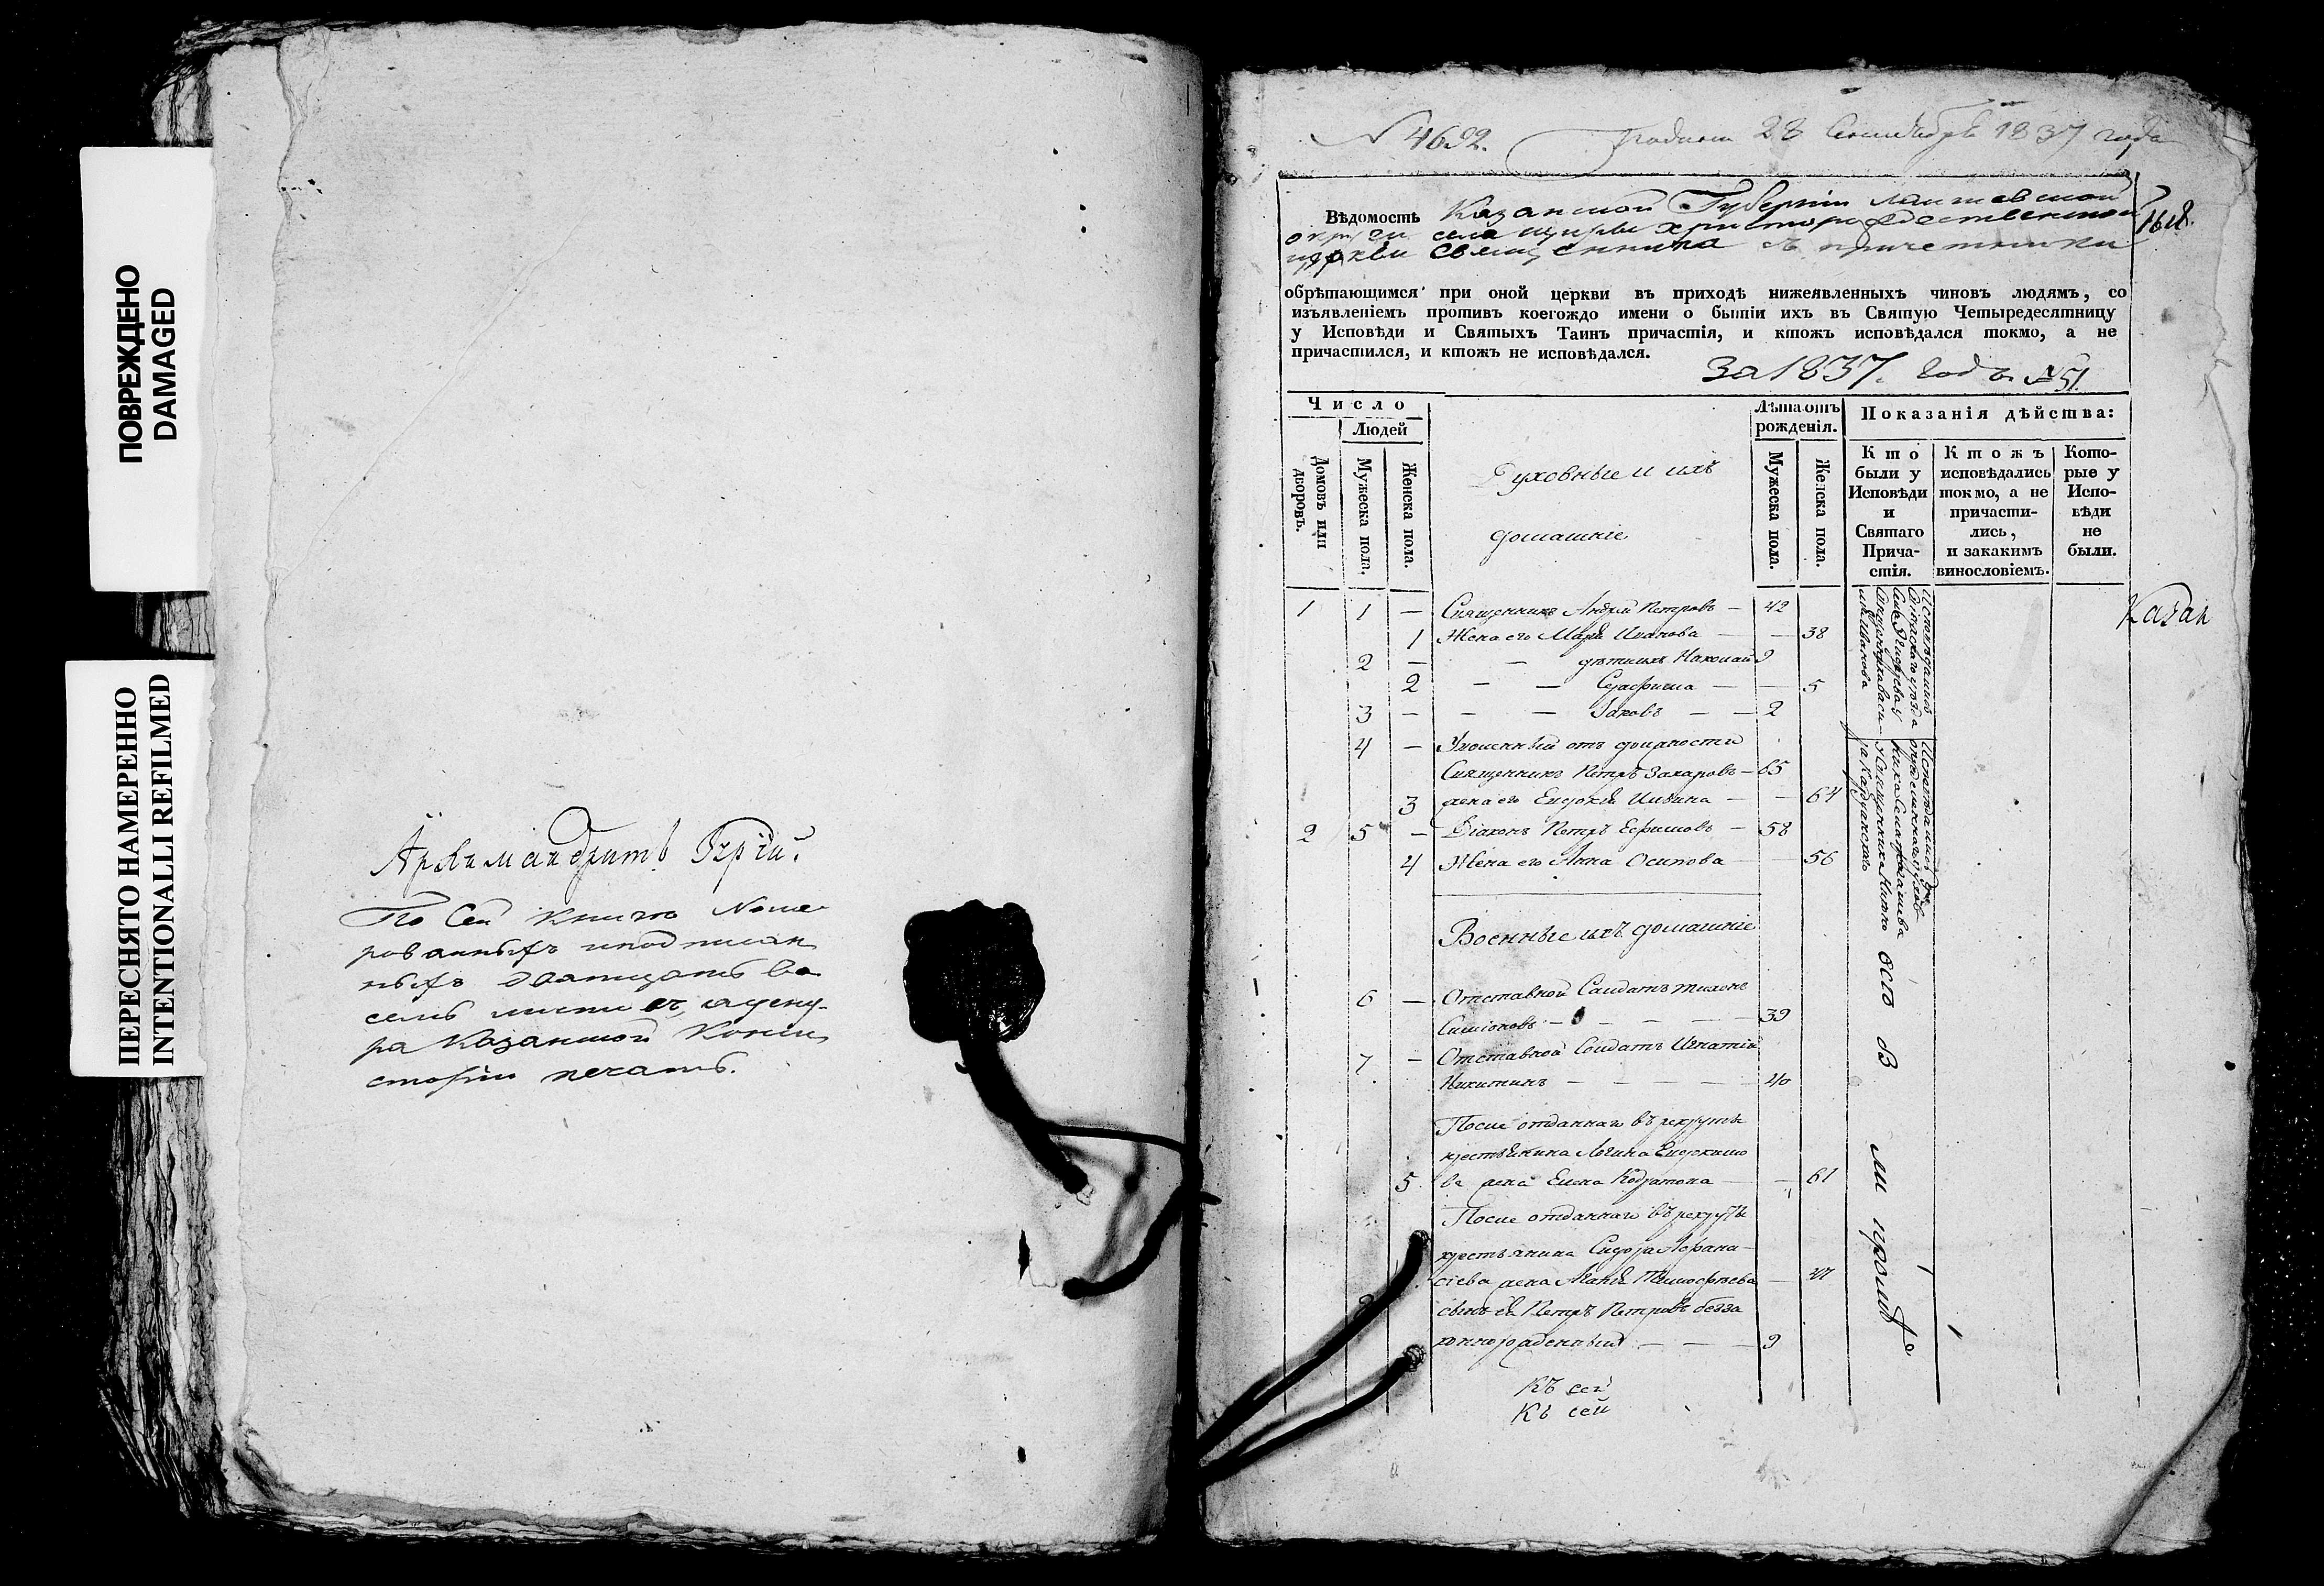 ПОВРЕЖДЕНО
DAMAGED
ПЕРЕСНЯТО НАМЕРЕННО
INTENTIONALLI REFILMED
Архимандритъ Гурій.
По сей книгѣ номе
рованныхъ и подписан
ныхъ дватцать во
семь листовъ, у сего шну
ра Казанской Конси
сторіи печать.
N 4692. Подана 28 Сентября 1837 года
Вѣдомость Казанской Губерніи Лаишевской
округи села христорождественской
церкви священника съ причетники
1618.
обрѣтающимся при оной церкви въ приходѣ нижеявленныхъ чиновъ людямъ, со
изъявленіемъ противъ коегождо имени о бытіи ихъ въ Святую Четыредесятницу
у Исповѣди и Святыхъ Таинъ причастія, и ктожъ исповѣдался токмо, а не
причастился, и ктожъ не исповѣдался.
За 1837. Годъ № 51.
Число
Людей
Домовъ или дворовъ.
Мужеска пола.
Женска пола.
Духовные и ихъ
домашніе
Лѣта отъ рожденія.
Мужеска пола.
Женска пола.
Показанія дѣйства:
Кто были у Исповѣди и Святаго Причастія.
Ктожъ исповѣдались токмо, а не причастились, и закакимъ винословіемъ.
Которые у Исповѣди не были.
1 1 — Священникъ Андрей Петровъ — 42
1 Жена его Марья Иванова — — 38
2 — — дѣти ихъ Николай 9
2 — — Серафима — — 5
3 — — — Іаковъ — — 2
4 — Уволенный отъ должности
Священникъ Петръ Захаровъ — 65
3 жена его Евдокія Ильина — — 64
2 5 — Діаконъ Петръ Ефимовъ — 58
4 Жена его Анна Осипова — — 56
Военные ихъ домашніе
6 — Отставной Солдатъ Тихонъ
Симіоновъ — — — — 39
7 — Отставной Солдатъ Игнатій
Никитинъ — — — — 40
После отданнаго въ рекруты
крестьянина Логина Евдокимо
5 ва жена Елена Кодратова — — 61
После отданнаго въ рекруты
крестьянина Сидора Афана
сіева жена Тимофеева — 47
сынъ ея Петръ Петровъ безза
коннорожденный — — — 9
Къ сей
Къ сей
Казан